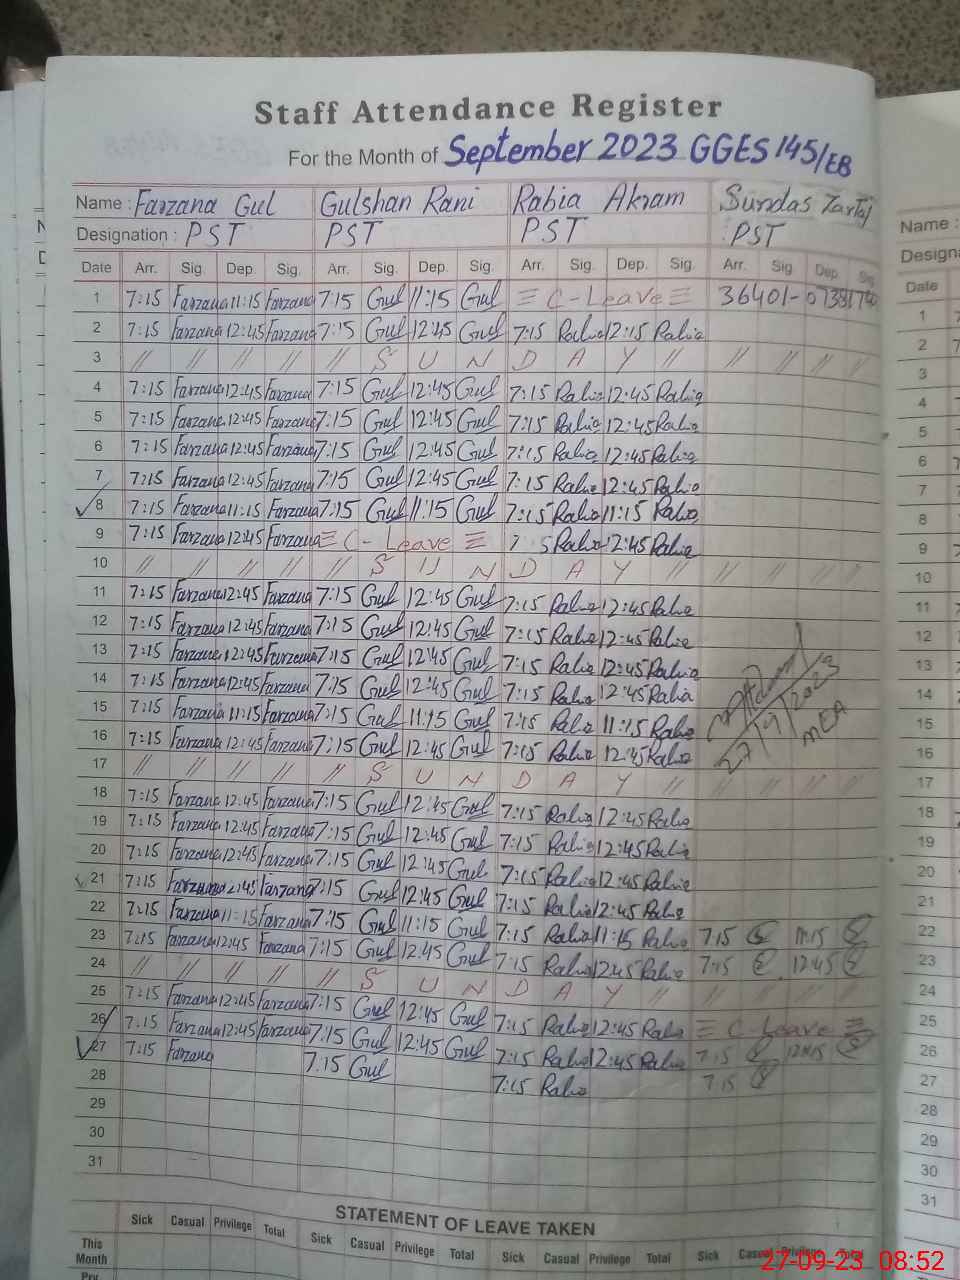 Staff Attendance Register
For the Month of September 2023 GGES 145/EB
Name : Farzana Gul Gulshan Rani Rabia Akram Sundas Name :
Designation : PST PST PST : PST
Date Arr. Sig. Dep. Sig. Arr. Sig. Dep. Sig. Arr. Sig. Dep. Sig. Arr. Sig. Dep. Date
1 7:15 Farzana 11:15 Farzana 7:15 Gul 11:15 Gul C-Leave 1
2 7:15 Farzana 12:45 Farzana 7:15 Gul 12:45 Gul 7:15 Rabia 12:15 Rabia 2
3 // // // // // S U N D A Y // // // // // 3
4 7:15 Farzana 12:45 Farzana 7:15 Gul 12:45 Gul 7:15 Rabia 12:45 Rabia 4
5 7:15 Farzana 12:45 Farzana 7:15 Gul 12:45 Gul 7:15 Rabia 12:45 Rabia 5
6 7:15 Farzana 12:45 Farzana 7:15 Gul 12:45 Gul 7:15 Rabia 12:45 Rabia 6
7 7:15 Farzana 12:45 Farzana 7:15 Gul 12:45 Gul 7:15 Rabia 12:45 Rabia 7
8 7:15 Farzana 11:15 Farzana 7:15 Gul 11:15 Gul 7:15 Rabia 11:15 Rabia 8
9 7:15 Farzana 12:45 Farzana C-Leave 7 5 Rabia 12:45 Rabia 9
10 // // // // // S U N D A Y // // // // // 10
11 7:15 Farzana 12:45 Farzana 7:15 Gul 12:45 Gul 7:15 Rabia 12:45 Rabia 11
12 7:15 Farzana 12:45 Farzana 7:15 Gul 12:45 Gul 7:15 Rabia 12:45 Rabia 12
13 7:15 Farzana 12:45 Farzana 7:15 Gul 12:45 Gul 7:15 Rabia 12:45 Rabia 13
14 7:15 Farzana 12:45 Farzana 7:15 Gul 12:45 Gul 7:15 Rabia 12:45 Rabia 14
15 7:15 Farzana 11:15 Farzana 7:15 Gul 11:15 Gul 7:15 Rabia 11:15 Rabia 27/9/2023 MEA 15
16 7:15 Farzana 12:45 Farzana 7:15 Gul 12:45 Gul 7:15 Rabia 12:45 Rabia 16
17 // // // // // S U N D A Y // // // // // 17
18 7:15 Farzana 12:45 Farzana 7:15 Gul 12:45 Gul 7:15 Rabia 12:45 Rabia 18
19 7:15 Farzana 12:45 Farzana 7:15 Gul 12:45 Gul 7:15 Rabia 12:45 Rabia 19
20 7:15 Farzana 12:45 Farzana 7:15 Gul 12:45 Gul 7:15 Rabia 12:45 Rabia 20
21 7:15 Farzana 12:45 Farzana 7:15 Gul 12:45 Gul 7:15 Rabia 12:45 Rabia 21
22 7:15 Farzana 11:15 Farzana 7:15 Gul 11:15 Gul 7:15 Rabia 11:15 Rabia 7:15 11:15 22
23 7:15 Farzana 12:45 Farzana 7:15 Gul 12:45 Gul 7:15 Rabia 12:45 Rabia 7:15 12:45 23
24 // // // // // S U N D A Y // // // // // 24
25 7:15 Farzana 12:45 Farzana 7:15 Gul 12:45 Gul 7:15 Rabia 12:45 Rabia C-Leave 25
26 7:15 Farzana 12:45 Farzana 7:15 Gul 12:45 Gul 7:15 Rabia 12:45 Rabia 7:15 12:45 26
27 7:15 Farzana 7:15 Gul 7:15 Rabia 7:15 27
28 28
29 29
30 30
31 31
STATEMENT OF LEAVE TAKEN
Sick Casual Privilege Total Sick Casual Privilege Total Sick Casual Privilege Total Sick Casual Privilege Total
This Month
27-09-23 08:52